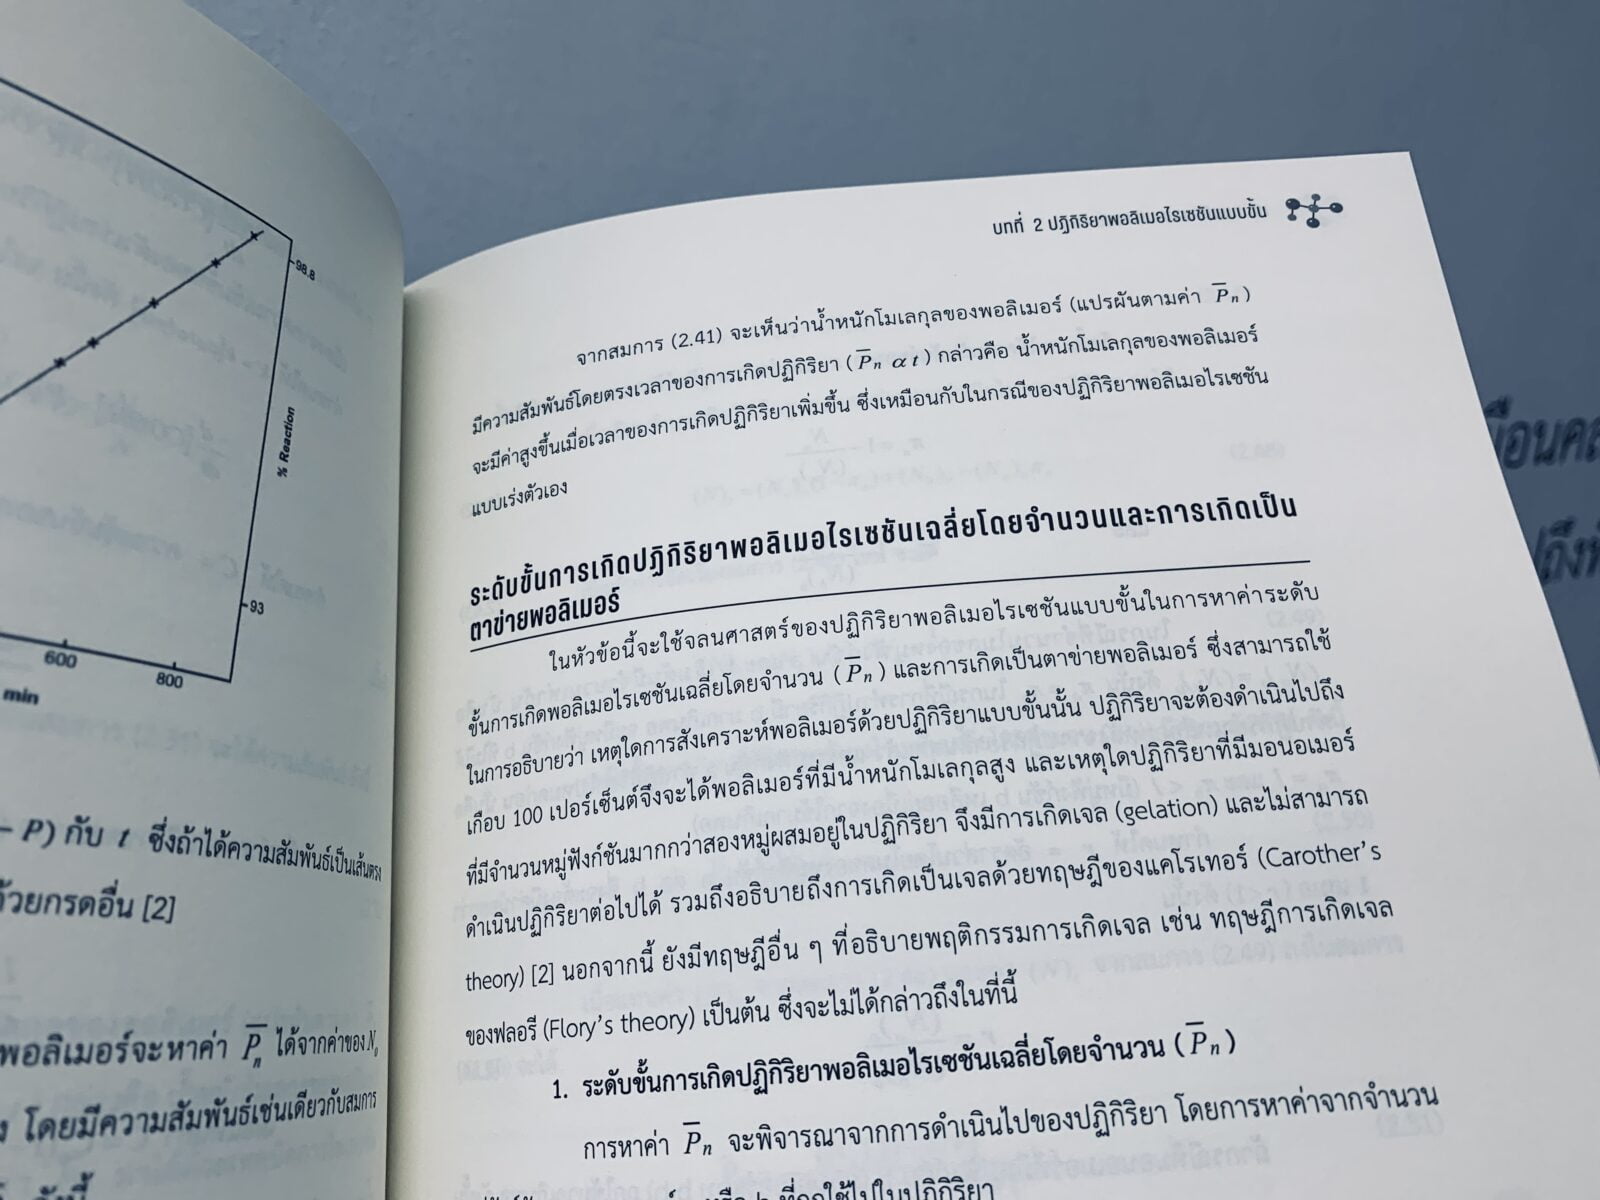 98.8
% Reaction
93
600
800
min
– P) กับ t ซึ่งถ้าได้ความสัมพันธ์เป็นเส้นตรง
ด้วยกรดอื่น [2]
พอลิเมอร์จะหาค่า P̅n ได้จากค่าของ N₀
โดยมีความสัมพันธ์เช่นเดียวกับสมการ
ดังนี้
บทที่ 2 ปฏิกิริยาพอลิเมอไรเซชันแบบขั้น
จากสมการ (2.41) จะเห็นว่าน้ำหนักโมเลกุลของพอลิเมอร์ (แปรผันตามค่า P̅n)
มีความสัมพันธ์โดยตรงเวลาของการเกิดปฏิกิริยา (P̅n α t) กล่าวคือ น้ำหนักโมเลกุลของพอลิเมอร์
จะมีค่าสูงขึ้นเมื่อเวลาของการเกิดปฏิกิริยาเพิ่มขึ้น ซึ่งเหมือนกับในกรณีของปฏิกิริยาพอลิเมอไรเซชัน
แบบเร่งตัวเอง
ระดับขั้นการเกิดปฏิกิริยาพอลิเมอไรเซชันเฉลี่ยโดยจำนวนและการเกิดเป็น
ตาข่ายพอลิเมอร์
ในหัวข้อนี้จะใช้จลนศาสตร์ของปฏิกิริยาพอลิเมอไรเซชันแบบขั้นในการหาค่าระดับ
ขั้นการเกิดพอลิเมอไรเซชันเฉลี่ยโดยจำนวน (P̅n) และการเกิดเป็นตาข่ายพอลิเมอร์ ซึ่งสามารถใช้
ในการอธิบายว่า เหตุใดการสังเคราะห์พอลิเมอร์ด้วยปฏิกิริยาแบบขั้นนั้น ปฏิกิริยาจะต้องดำเนินไปถึง
เกือบ 100 เปอร์เซ็นต์จึงจะได้พอลิเมอร์ที่มีน้ำหนักโมเลกุลสูง และเหตุใดปฏิกิริยาที่มีมอนอเมอร์
ที่มีจำนวนหมู่ฟังก์ชันมากกว่าสองหมู่ผสมอยู่ในปฏิกิริยา จึงมีการเกิดเจล (gelation) และไม่สามารถ
ดำเนินปฏิกิริยาต่อไปได้ รวมถึงอธิบายถึงการเกิดเป็นเจลด้วยทฤษฎีของแคโรเทอร์ (Carother's
theory) [2] นอกจากนี้ ยังมีทฤษฎีอื่น ๆ ที่อธิบายพฤติกรรมการเกิดเจล เช่น ทฤษฎีการเกิดเจล
ของฟลอรี (Flory's theory) เป็นต้น ซึ่งจะไม่ได้กล่าวถึงในที่นี้
1. ระดับขั้นการเกิดปฏิกิริยาพอลิเมอไรเซชันเฉลี่ยโดยจำนวน (P̅n)
การหาค่า P̅n จะพิจารณาจากการดำเนินไปของปฏิกิริยา โดยการหาค่าจากจำนวน
หรือ b ที่ถูกใช้ไปในปฏิกิริยา